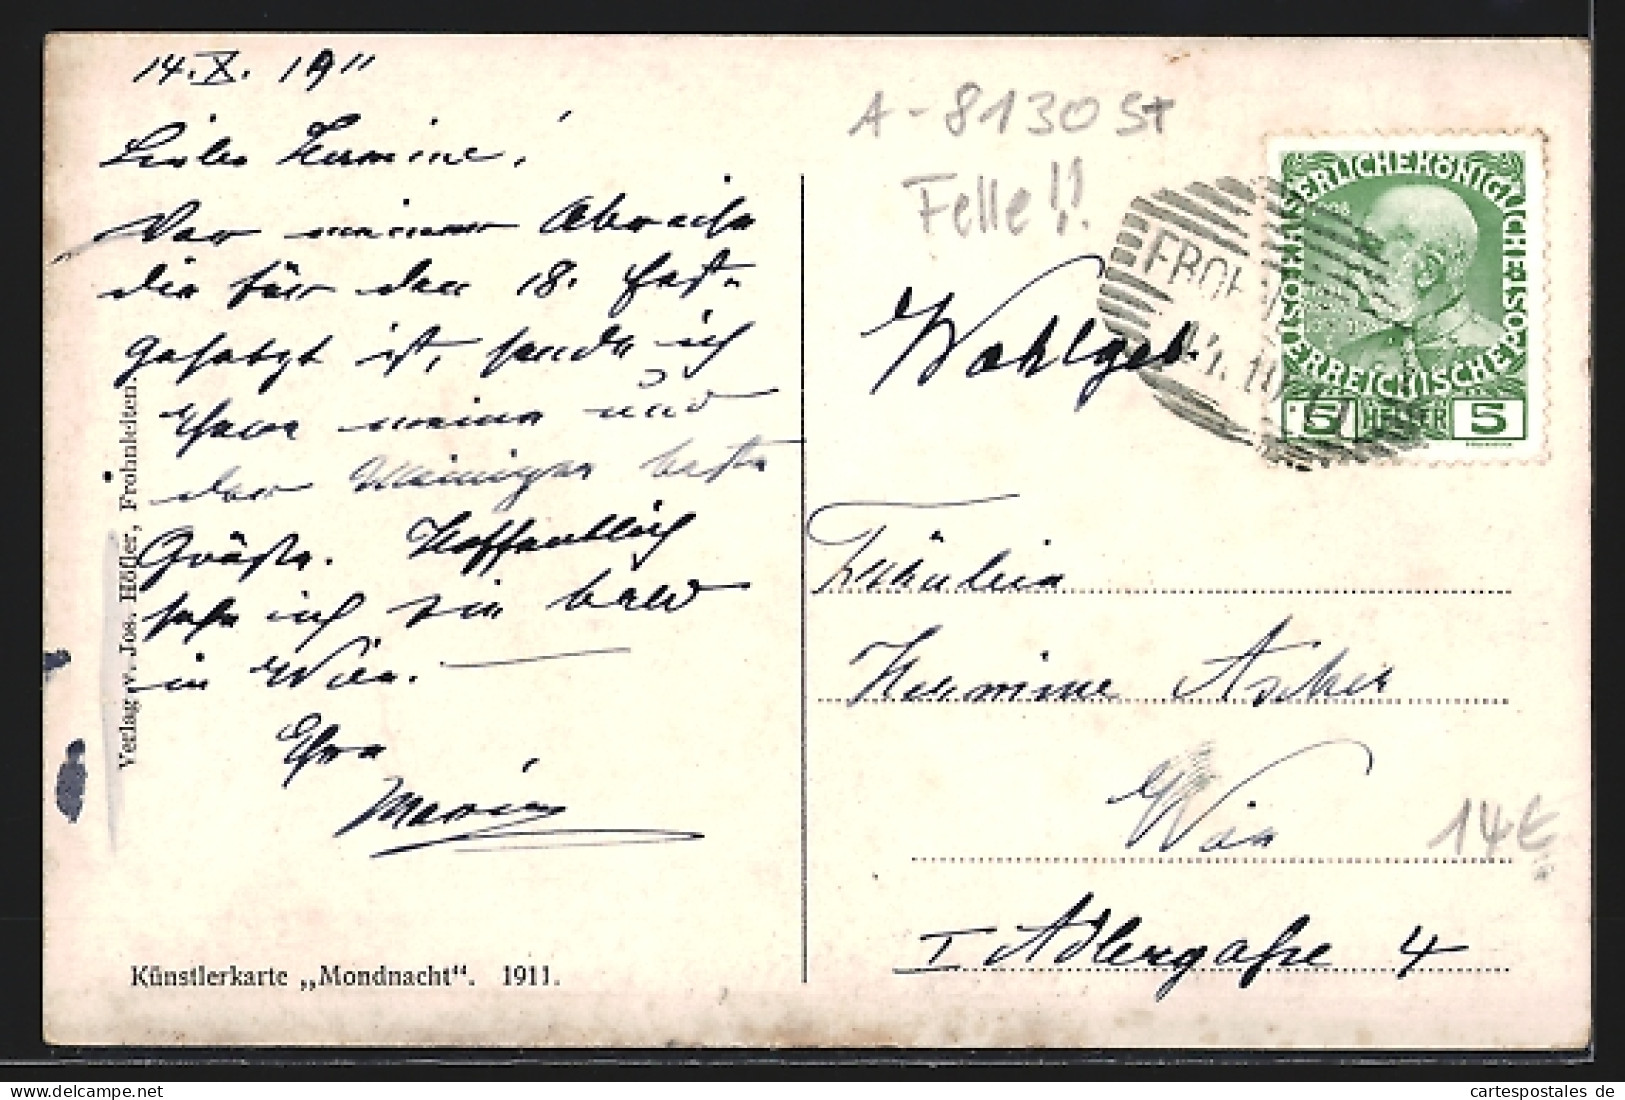 14.X.1911
Liebe Hermine!
Vor meiner Abreise
die für den 18. fest-
gesetzt ist, sende ich
Ihnen meine und
der Meinigen beste
Grüße. Hoffentlich
sehe ich sie bald
in Wien.
Ihre
Verlag v. Jos. Höfler, Frohnleiten.
Künstlerkarte „Mondnacht“. 1911.
A-8130 St
Felle!!
KAISERLICHE KÖNIGLICHE ÖSTERREICHISCHE POST
1908
5 HELLER 5
FROHN
14. 10. 11
Wohlgeb.
Fräulein
Hermine Ascher
Wien
I Adlergasse 4
14€
cartespostales de